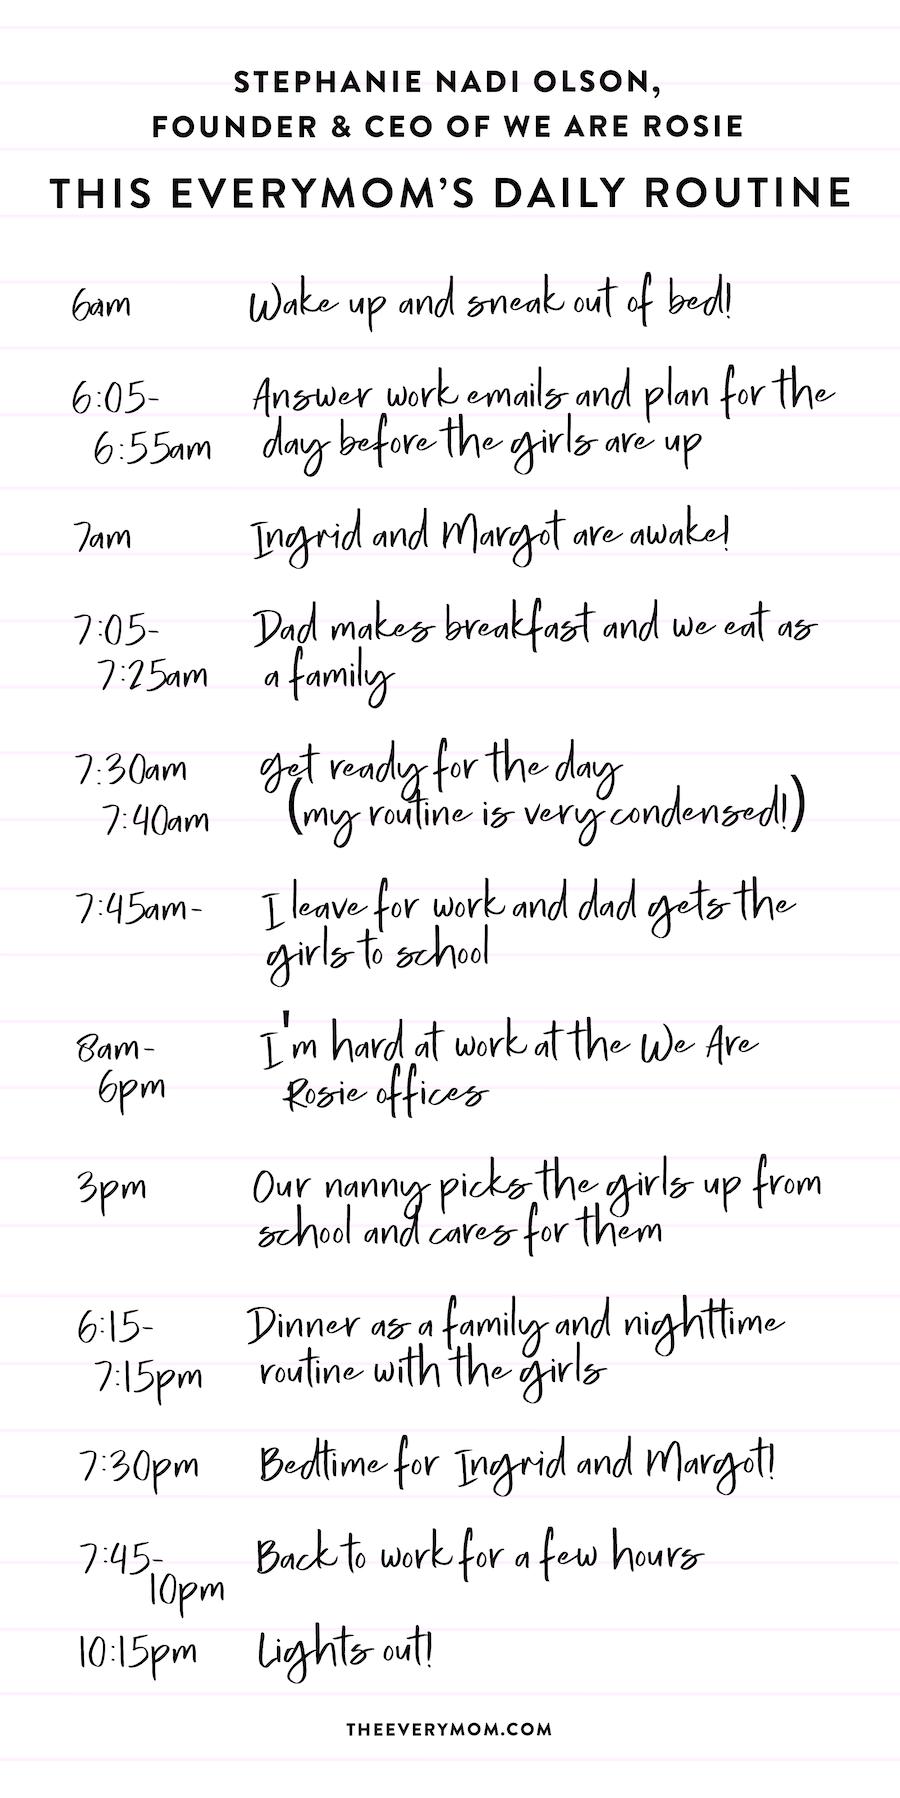 STEPHANIE NADI OLSON,
FOUNDER & CEO OF WE ARE ROSIE
THIS EVERYMOM'S DAILY ROUTINE
6am Wake up and sneak out of bed!
6:05- Answer work emails and plan for the
6:55am day before the girls are up
7am Ingrid and Margot are awake!
7:05- Dad makes breakfast and we eat as
7:25am a family
7:30am get ready for the day
7:40am (my routine is very condensed!)
7:45am- I leave for work and dad gets the
girls to school
8am- I'm hard at work at the We Are
6pm Rosie offices
3pm Our nanny picks the girls up from
school and cares for them
6:15- Dinner as a family and nighttime
7:15pm routine with the girls
7:30pm Bedtime for Ingrid and Margot!
7:45- Back to work for a few hours
10pm
10:15pm Lights out!
THEEVERYMOM.COM